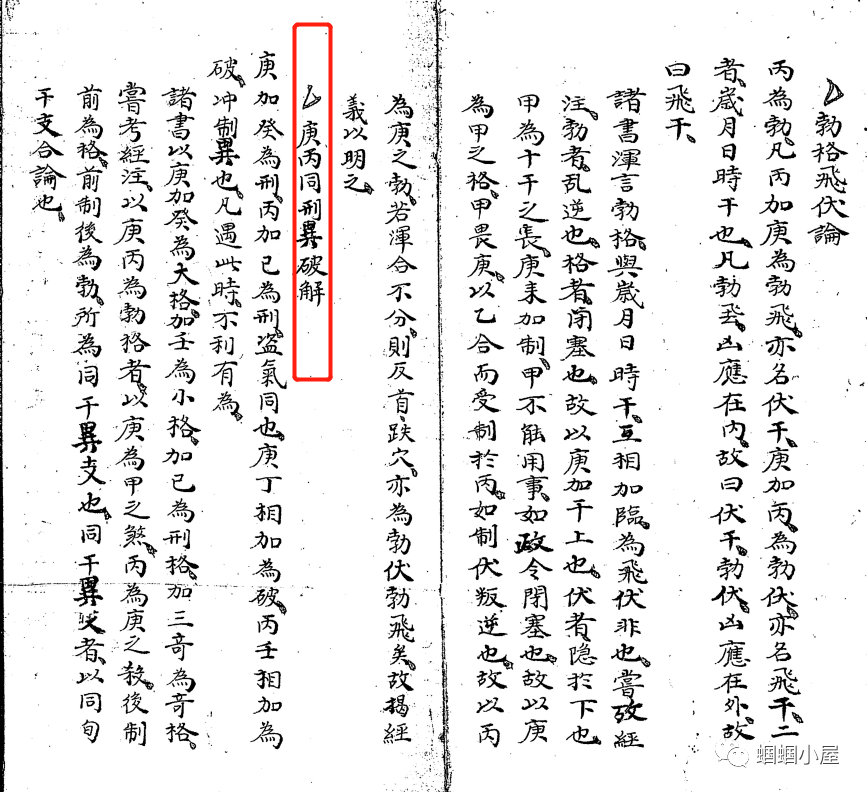 勃格飛伏論
丙為勃。凡丙加庚為勃飛。亦名伏干。庚加丙。為勃伏。亦名飛干。二
者。歲月日時干也。凡勃飛。凶應在内。故曰伏干。勃伏。凶應在外。故
曰飛干。
諸書渾言勃格。與歲月日時干。互相加臨。為飛伏非也。嘗攷經
注。勃者。乱逆也。格者。閉塞也。故以庚加干上也。伏者。隐於下也
甲為十干之長。庚来加制。甲不能用事。如政令閉塞也。故以庚
為甲之格。甲畏庚。以乙合而受制於丙。如制伏叛逆也。故以丙
為庚之勃。若渾合不分。則反首、跌穴。亦為勃伏勃飛矣。故揭經
義以明之。
庚丙同刑異破解
庚加癸為刑。丙加已為刑。盗氣同也。庚丁相加為破。丙壬相加為
破。冲制異也。凡遇此時。不利有為。
諸書以庚加癸為大格。加壬為小格。加已為刑格。加三奇為奇格。
嘗考經注。以庚丙為勃格者。以庚為甲之煞。丙為庚之殺。後制
前為格。前制後為勃。所為同干異支也。同干異者。以同旬
干支合論也。
蝈蝈小屋